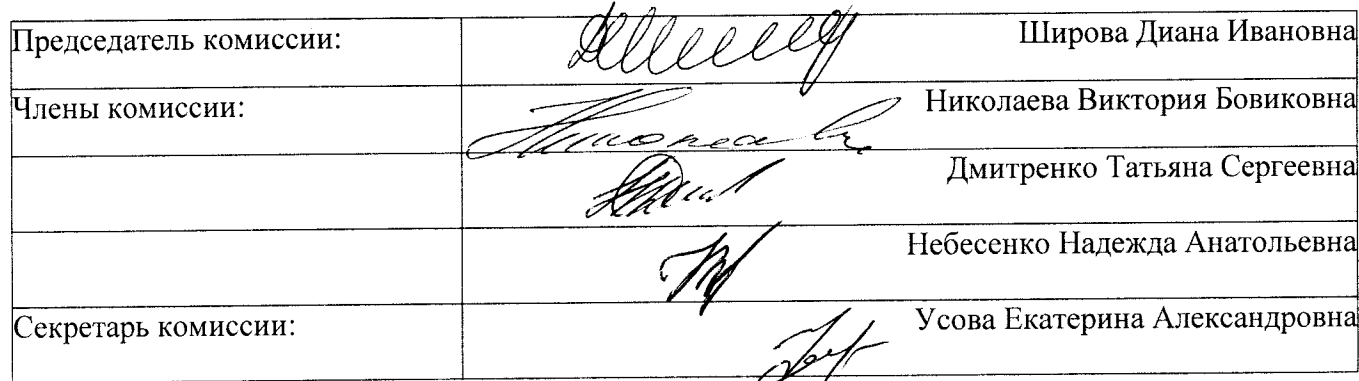 Председатель комиссии: Широва Диана Ивановна
Члены комиссии: Николаева Виктория Бовиковна
Дмитренко Татьяна Сергеевна
Небесенко Надежда Анатольевна
Секретарь комиссии: Усова Екатерина Александровна